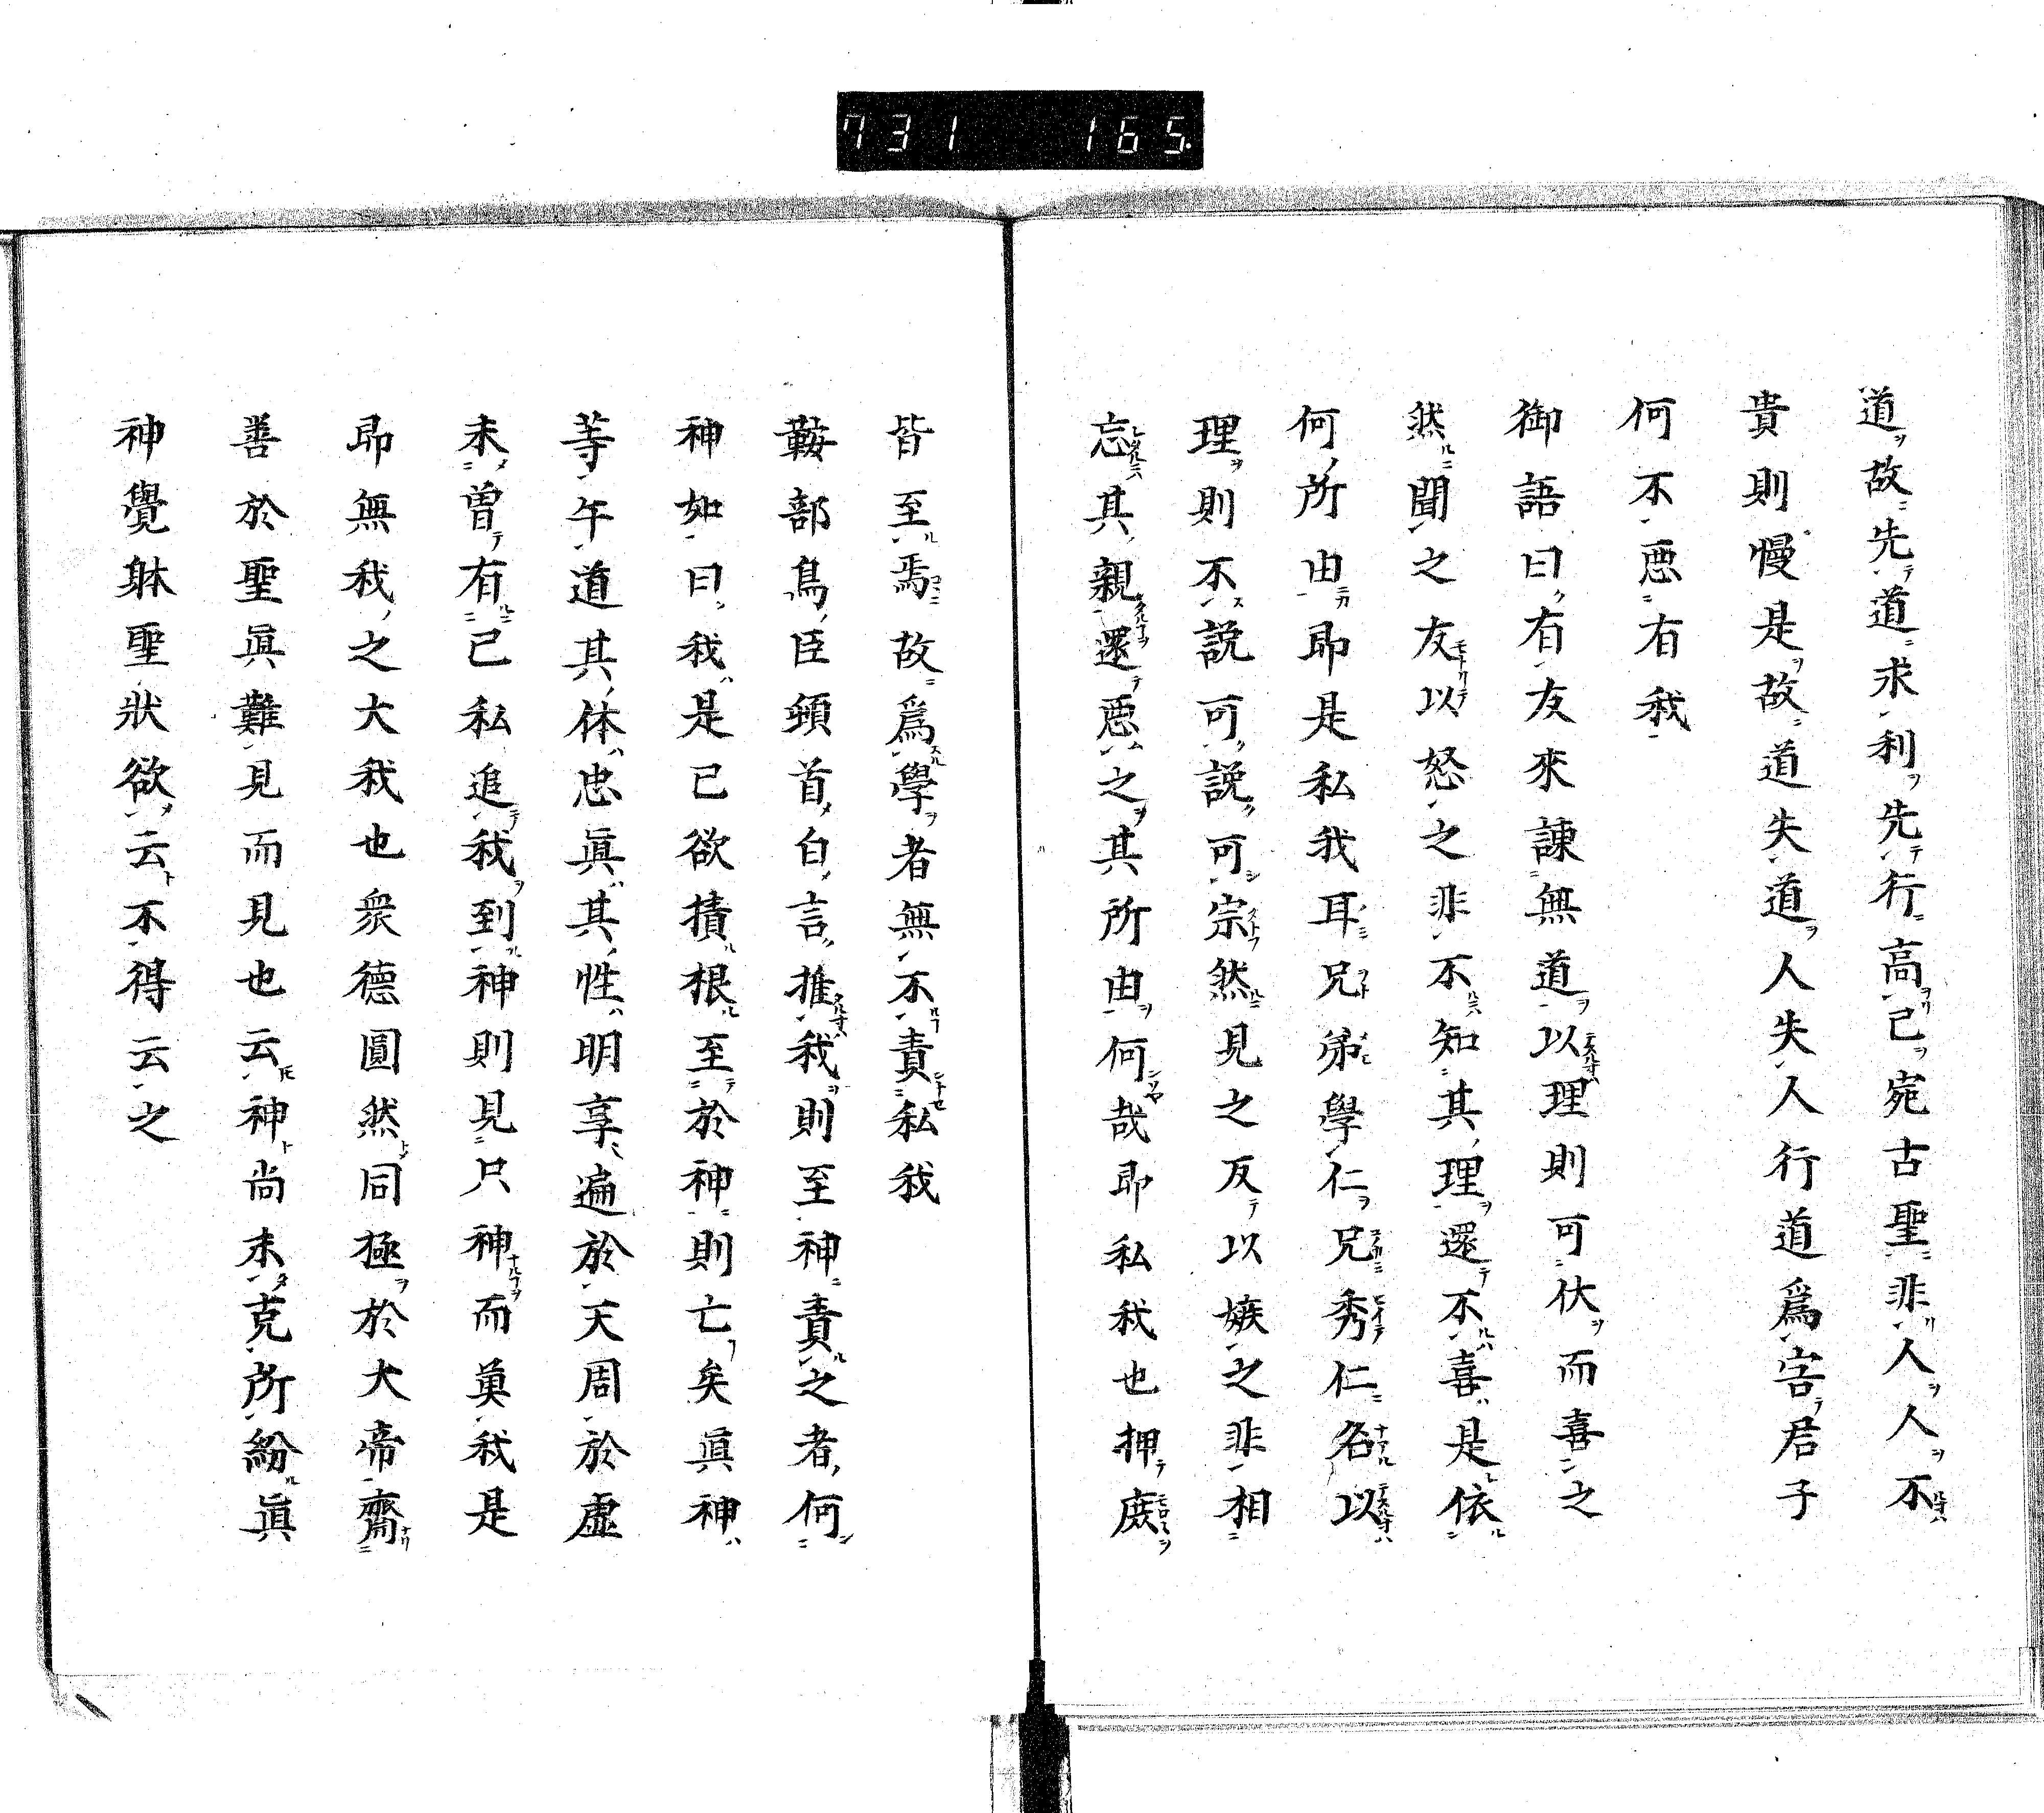 731 165.
道故先道求利先行高己宛古聖非人人不
貴則慢是故道失道人失人行道爲害君子
何不惡有我
御語曰有友來諫無道以理則可伏而喜之
然聞之友以怒之非不知其理還不喜是依
何所由即是私我耳兄弟學仁兄秀仁名以
理則不說可說可宗然見之反以嫉之非相
忘其親還惡之其所由何哉即私我也押庶
皆至焉故爲學者無不責私我
鞍部鳥臣頓首白言推我則至神責之者何
神如曰我是已欲積根至於神則亡矣眞神
等午道其体忠眞其性明享遍於天周於虛
未曾有己私追我到神則見只神而眞我是
即無我之大我也衆德圓然同極於大帝齋
善於聖眞難見而見也云神尚未克所紛眞
神覺躰聖狀欲云不得云之